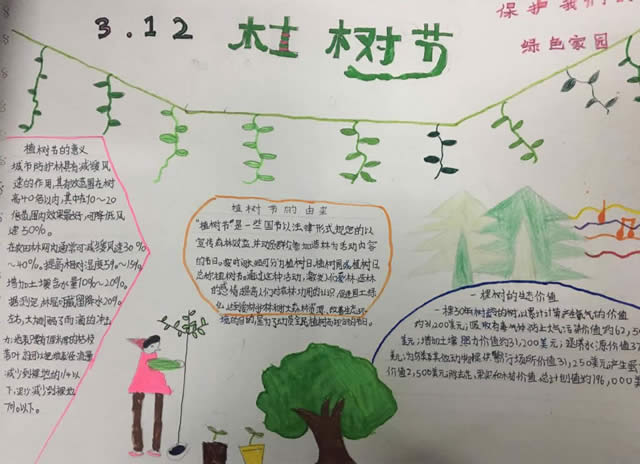 3.12 植树节
保护我们的
绿色家园
植树节的意义
城市防护林具有减缓风
速的作用,其有效范围在树
高40倍以内,其中在10~20
倍范围内效果最好,可降低风
速50%。
在农田林网内通常可减缓风速30%
~40%。提高相对湿度5%~15%,
增加土壤含水量10%~20%。
据测定,林冠可截留降水20%
左右,大大削弱了雨滴的冲
减少到裸地的1/4以
下,泥沙减少到裸地
植树节的由来
"植树节"是一些国家以法律形式规定的以
宣传森林效益,并动员群众参加造林为活动内容
的节日。按时间长短可分为植树日,植树周或植树月
总称植树节。通过这种活动,激发人们爱林造林
的热情,提高人们对森林功用的认识,促进国土绿
一棵树的生态价值
一棵50年树龄的树,以累计计算产生氧气的价值
约31,200美元;吸收有毒气体防止大气污染价值约62,5
美元;增加土壤肥力价值约31,200美元;涵养水源价值37
美元;为鸟类及其他动物提供繁衍场所价值31,250美元;产生蛋
价值2,500美元。除去花、果实和木材价值,总计创值约196,000美